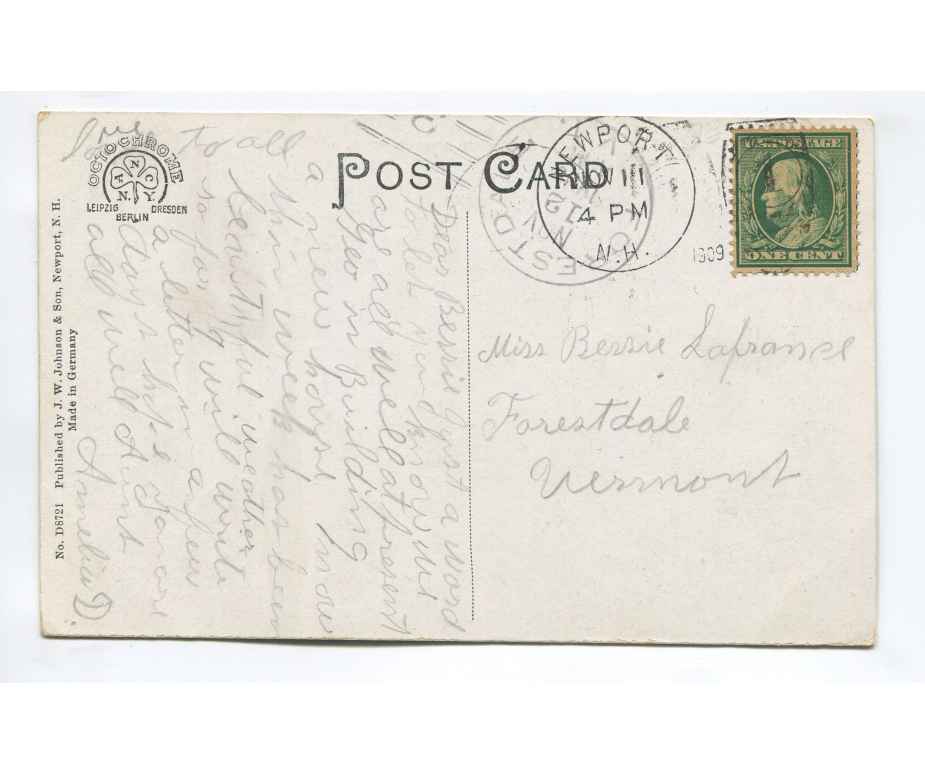 POST CARD
OCTOCHROME
A.N.C.
N. Y.
LEIPZIG DRESDEN
BERLIN
No. D8721 Published by J. W. Johnson & Son, Newport, N. H.
Made in Germany
NEWPORT
NOV 11
4 PM
N.H.
1909
EST DA
NOV
12
U.S. POSTAGE
ONE CENT
Miss Bessie Lafrance
Forestdale
Vermont
Dear Bessie Just a word
to let you know we
are all well at present
Geo is Building
a new house now
this week has been
beautiful weather
so far will write
a letter in a few
days hope you are
all well Aunt
Amelia D
love to all